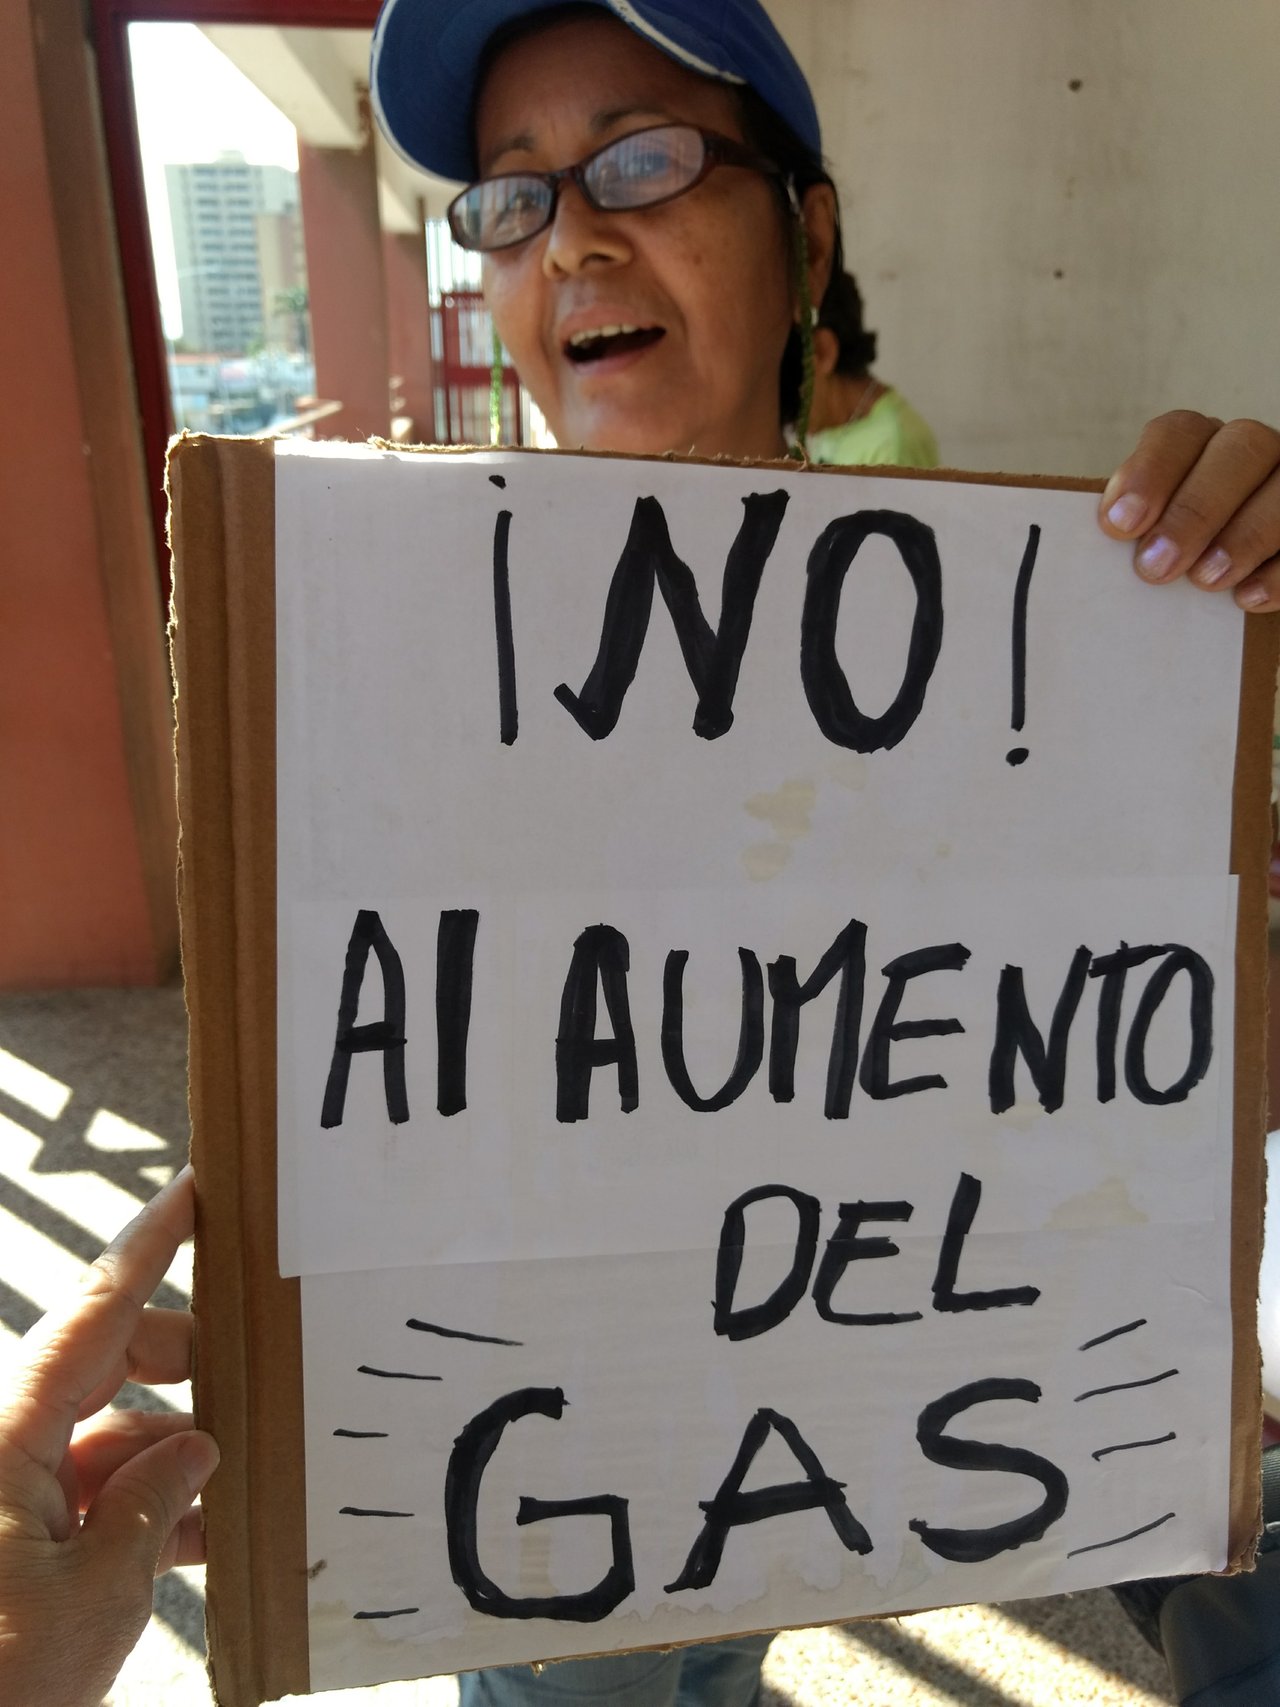 ¡NO!
Al AUMENTO
DEL
GAS